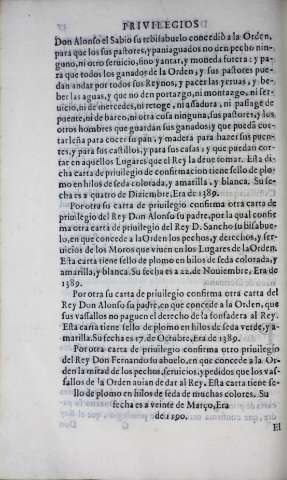 PRIVILEGIOS
Don Alonso el Sabio su rebisabuelo concedió a la Orden,
para que los sus pastores, y paniaguados no den pecho nin-
guno, ni otro seruicio, sino yantar, y moneda forera: y pa-
ra que todos los ganados de la Orden, y sus pastores pue-
dan andar por todos sus Reynos, y pacer las yeruas, y be-
ber las aguas, y que no den portazgo, ni montazgo, ni ser-
uicio, ni de mercedes, ni retoge, ni assadura, ni passage de
puente, ni de barco, ni otra cosa ninguna, sus pastores, y los
otros hombres que guardan sus ganados; y que puedã cor-
tar leña para cocer su pan, y madera para hazer sus puen-
tes, y para sus castillos, y para sus casas: y que puedan cor-
tar en aquellos Lugares que el Rey la deue tomar. Esta di-
cha carta de priuilegio de confirmacion tiene sello de plo-
mo en hilos de seda colorada, y amarilla, y blanca. Su fe-
cha es a quatro de Diziembre, Era de 1389.
Por otra su carta de priuilegio confirma otra carta de
priuilegio del Rey Don Alonso su padre, por la qual confir
ma otra carta de priuilegio del Rey D. Sancho su bisabue-
lo, en que concede a la Orden los pechos, y derechos, y ser-
uicios de los Moros que viuen en los Lugares de la Orden.
Esta carta tiene sello de plomo en hilos de seda colorada, y
amarilla, y blanca. Su fecha es a 22. de Nouiembre, Era de
1389.
Por otra su carta de priuilegio confirma otra carta del
Rey Don Alonso su padre, en que concede a la Orden, que
sus vassallos no paguen el derecho de la fonsadera al Rey.
Esta carta tiene sello de plomo en hilos de seda verde, y a-
marilla. Su fecha es 17. de Octubre, Era de 1389.
Por otra carta de priuilegio confirma otro priuilegio
del Rey Don Fernando su abuelo, en que concede a la Or-
den la mitad de los pechos, seruicios, y pedidos que los vas-
sallos de la Orden auian de dar al Rey. Esta carta tiene se-
llo de plomo en hilos de seda de muchas colores. Su
fecha es a veinte de Março, Era
de 1390.
El